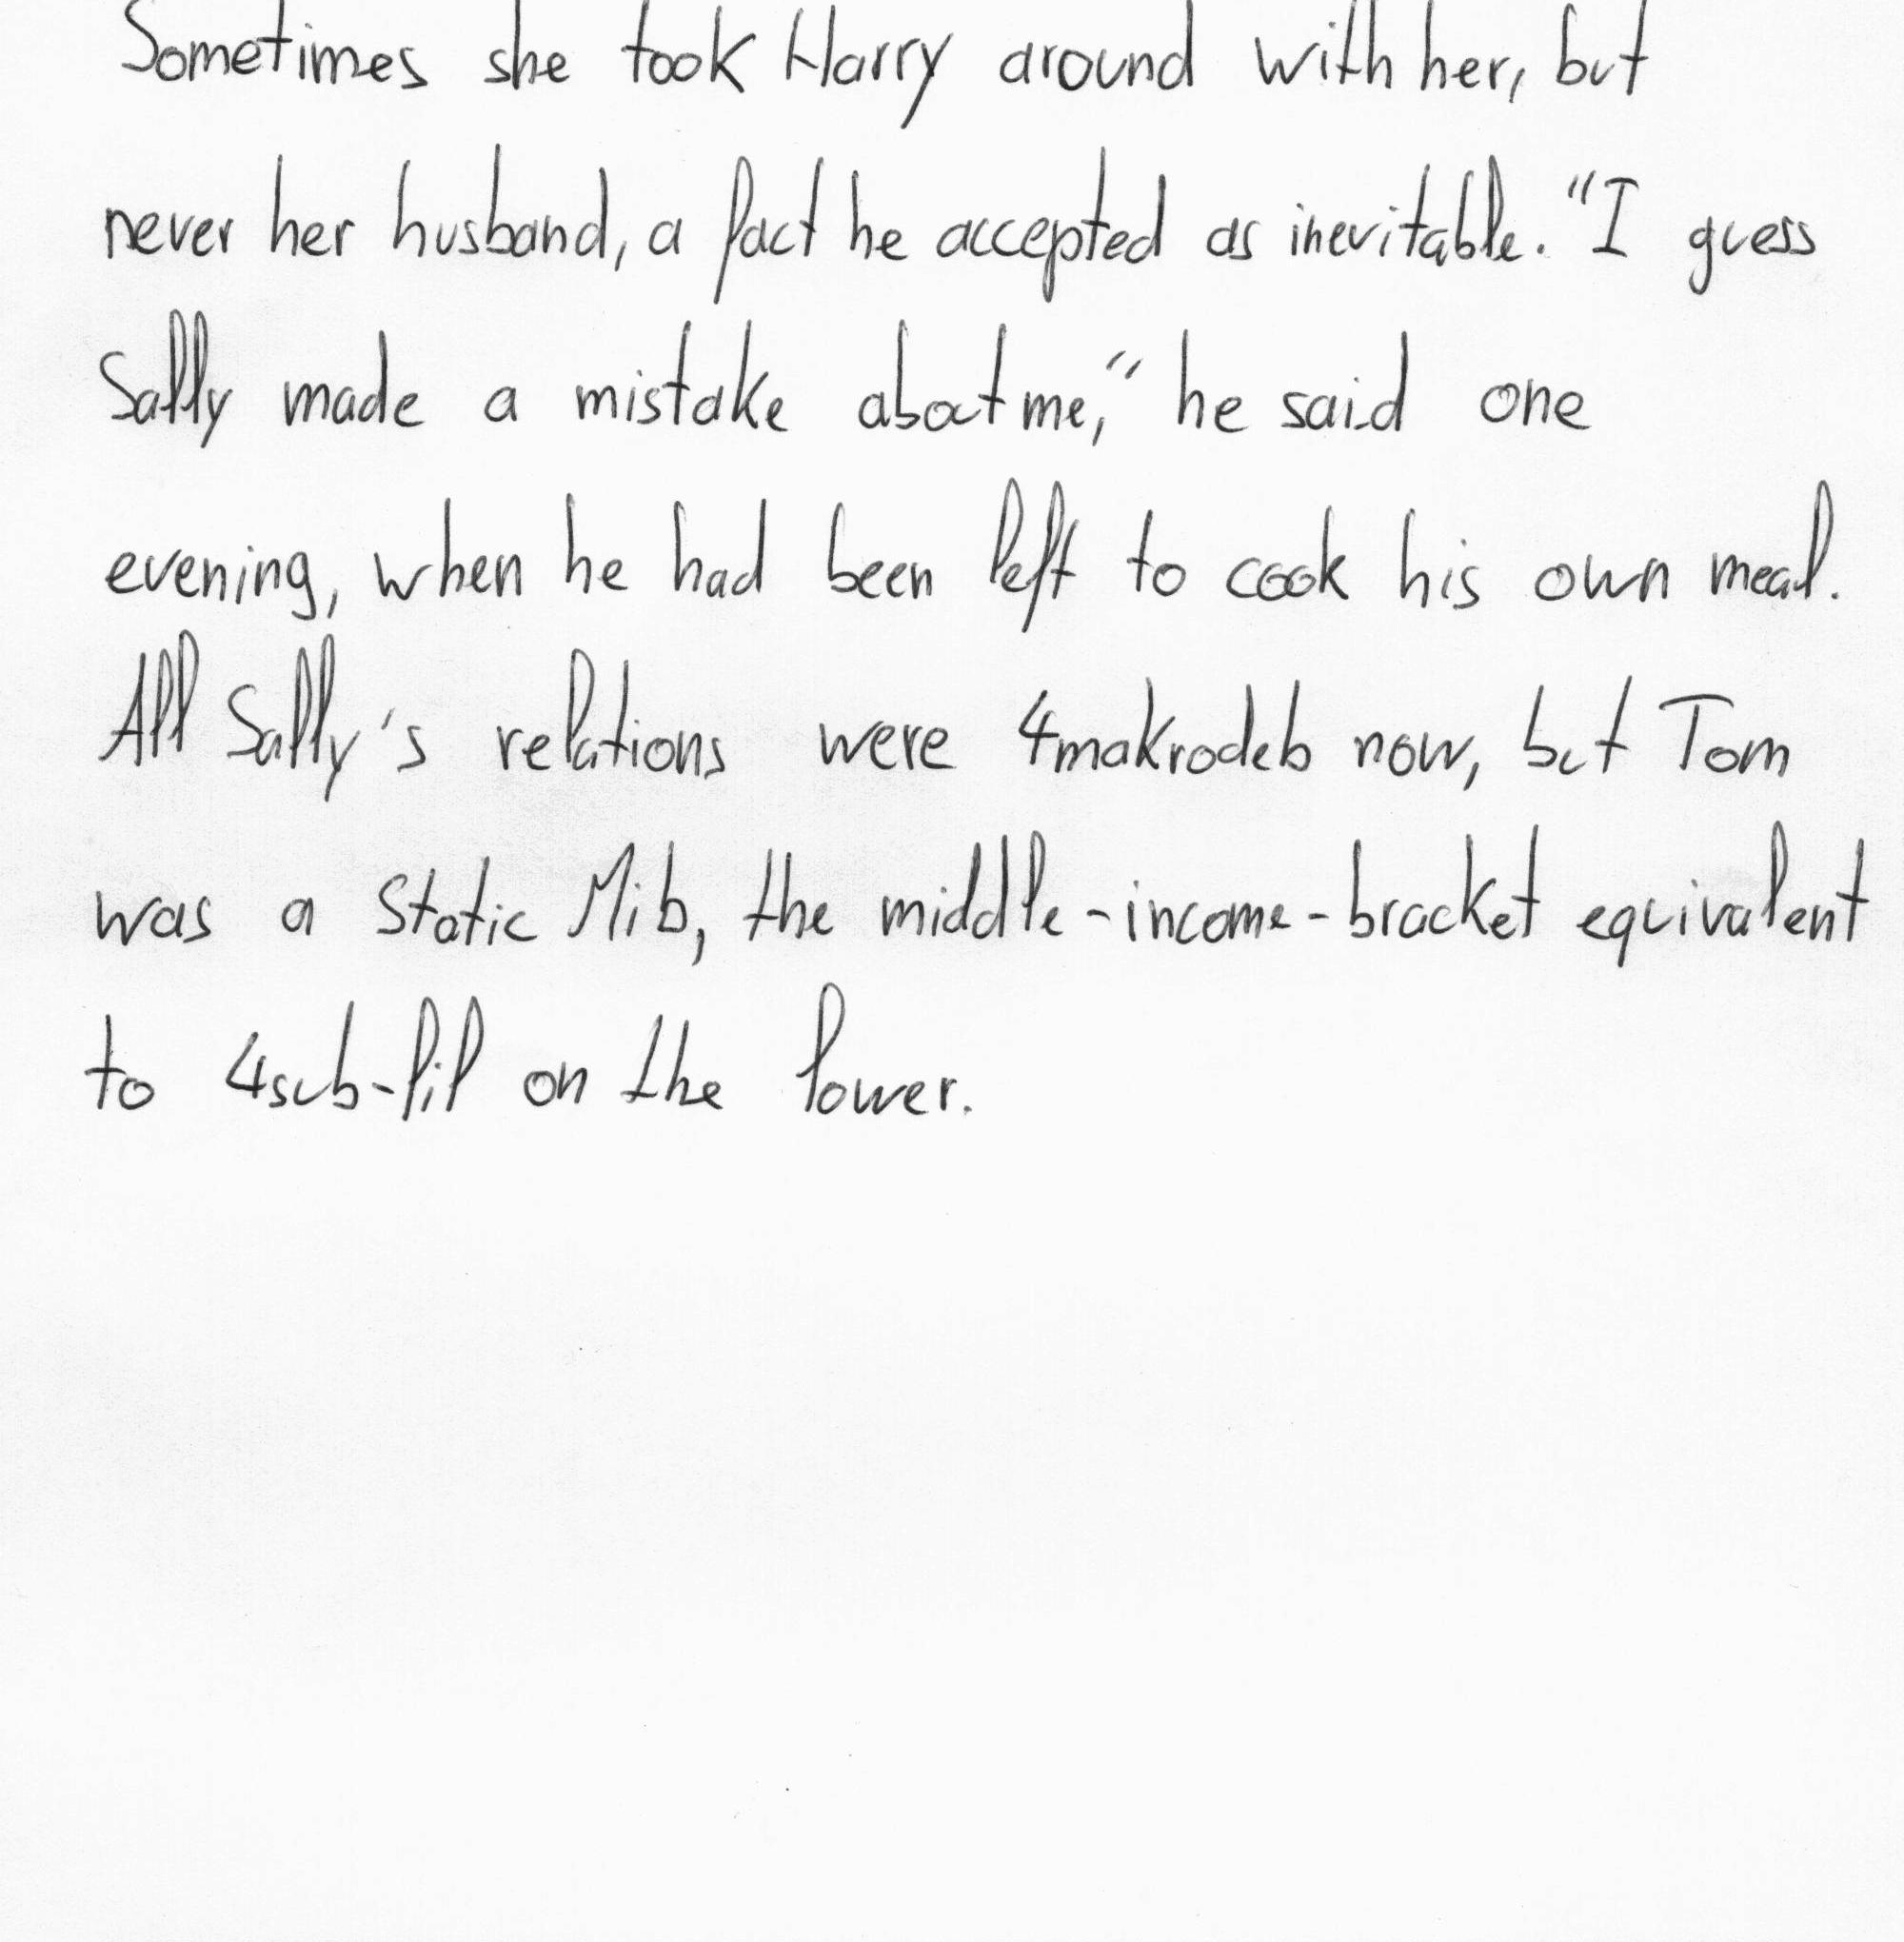 Sometimes she took Harry around with her, but
never her husband, a fact he accepted as inevitable. "I guess
Sally made a mistake about me," he said one
evening, when he had been left to cook his own meal.
All Sally's relations were 4makrodeb now, but Tom
was a Static Mib, the middle-income-bracket equivalent
to 4sub-lil on the lower.